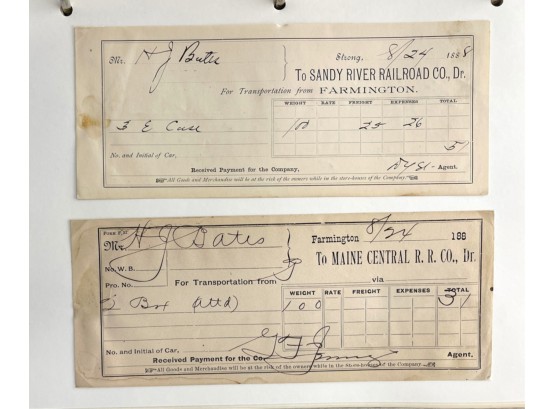 Mr. H J Bates
Strong, 8/24 1888
To SANDY RIVER RAILROAD CO., Dr.
For Transportation from FARMINGTON.
WEIGHT RATE FREIGHT EXPENSES TOTAL
3 E Case 100 25 26
51
No. and Initial of Car,
Received Payment for the Company, Agent.
All Goods and Merchandise will be at risk of the owners while in the store-houses of the Company.
Form
Mr. H J Bates
Farmington 8/24 188
To MAINE CENTRAL R. R. CO., Dr.
No. W. B.
Pro. No.
For Transportation from via
WEIGHT RATE FREIGHT EXPENSES TOTAL
Box 100 31
No. and Initial of Car,
Received Payment for the Co. Agent,
All Goods and Merchandise will be at the risk of the owners while in the Store-houses of the Company